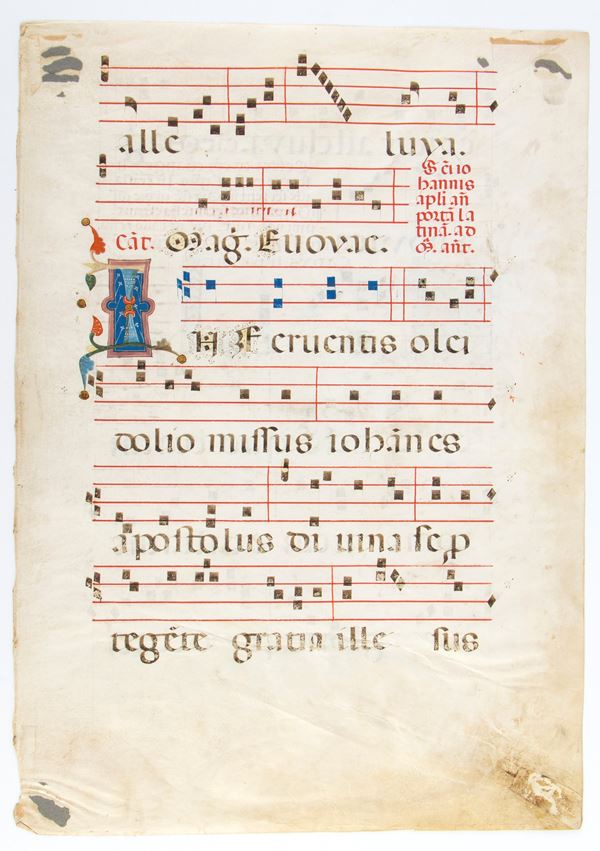 alle luya.
S. sci̅ io
hannis
apl̅i an̅
porta̅ la
tina̅. ad
M̅. an̅t.
Ca̅t. Mag̅. Euovae.
IN Feruentis olei
dolio missus ioha̅nes
apostolus di uina se p̲
tege̅te gratia ille sus